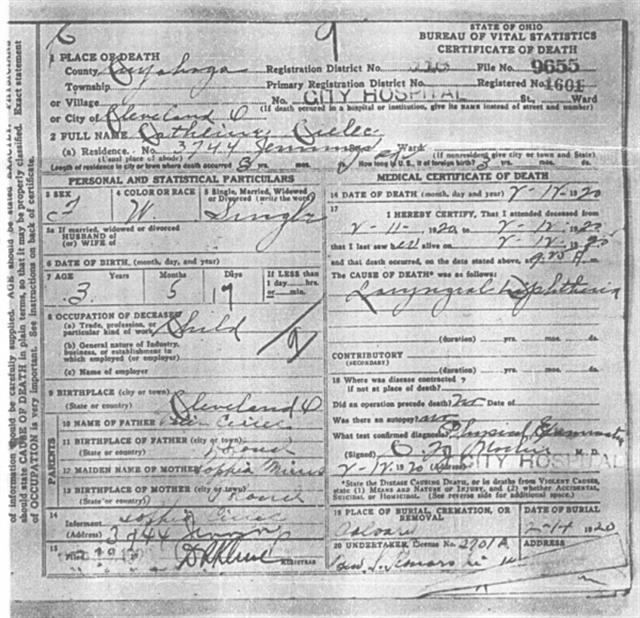 STATE OF OHIO
BUREAU OF VITAL STATISTICS
CERTIFICATE OF DEATH
1 PLACE OF DEATH
County Cuyahoga Registration District No. File No. 9655
Township Primary Registration District No. Registered No. 1601
or Village No. CITY HOSPITAL St., Ward
or City of Cleveland O (If death occurred in a hospital or institution, give its name instead of street and number)
2 FULL NAME Catherine
(a) Residence. No. 3744 Jennings Ward
(Usual place of abode) (If nonresident give city or town and State)
Length of residence in city or town where death occurred 3 yrs. mos. ds. How long in U.S., if of foreign birth? yrs. mos. ds.
PERSONAL AND STATISTICAL PARTICULARS
3 SEX 4 COLOR OR RACE 5 Single, Married, Widowed or Divorced (write the word)
F W Single
5a If married, widowed or divorced
HUSBAND of
(or) WIFE of
6 DATE OF BIRTH (month, day, and year)
7 AGE Years Months Days If LESS than
1 day....hrs.
or......min.
3 5 9
8 OCCUPATION OF DECEASED
(a) Trade, profession, or
particular kind of work Child
(b) General nature of industry,
business, or establishment in
which employed (or employer)
(c) Name of employer
9 BIRTHPLACE (city or town)
(State or country) Cleveland O
10 NAME OF FATHER
PARENTS
11 BIRTHPLACE OF FATHER (city or town)
(State or country)
12 MAIDEN NAME OF MOTHER Sophia
13 BIRTHPLACE OF MOTHER (city or town)
(State or country)
14
Informant Sophia
(Address) 3744 Jennings
15
Filed REGISTRAR
MEDICAL CERTIFICATE OF DEATH
16 DATE OF DEATH (month, day and year) 2-12-1920
17
I HEREBY CERTIFY, That I attended deceased from
2-11-1920, to 2-12-1920
that I last saw alive on 2-12-1920
and that death occurred, on the date stated above, at
The CAUSE OF DEATH* was as follows:
Laryngeal Diphtheria
(duration) yrs. mos. ds.
CONTRIBUTORY
(SECONDARY)
(duration) yrs. mos. ds.
18 Where was disease contracted
if not at place of death?
Did an operation precede death? no Date of
Was there an autopsy? no
What test confirmed diagnosis? Physical Examination
(Signed) M.D.
2-12-1920 (Address) CITY HOSPITAL
*State the DISEASE CAUSING DEATH, or in deaths from VIOLENT CAUSES, state (1) MEANS AND NATURE OF INJURY, and (2) whether ACCIDENTAL, SUICIDAL, or HOMICIDAL. (See reverse side for additional space.)
19 PLACE OF BURIAL, CREMATION, OR REMOVAL DATE OF BURIAL
Calvary 2-14 1920
20 UNDERTAKER, License No. 2701A ADDRESS
of information should be carefully supplied. AGE should be stated EXACTLY. PHYSICIANS
should state CAUSE OF DEATH in plain terms, so that it may be properly classified. Exact statement
of OCCUPATION is very important. See instructions on back of certificate.